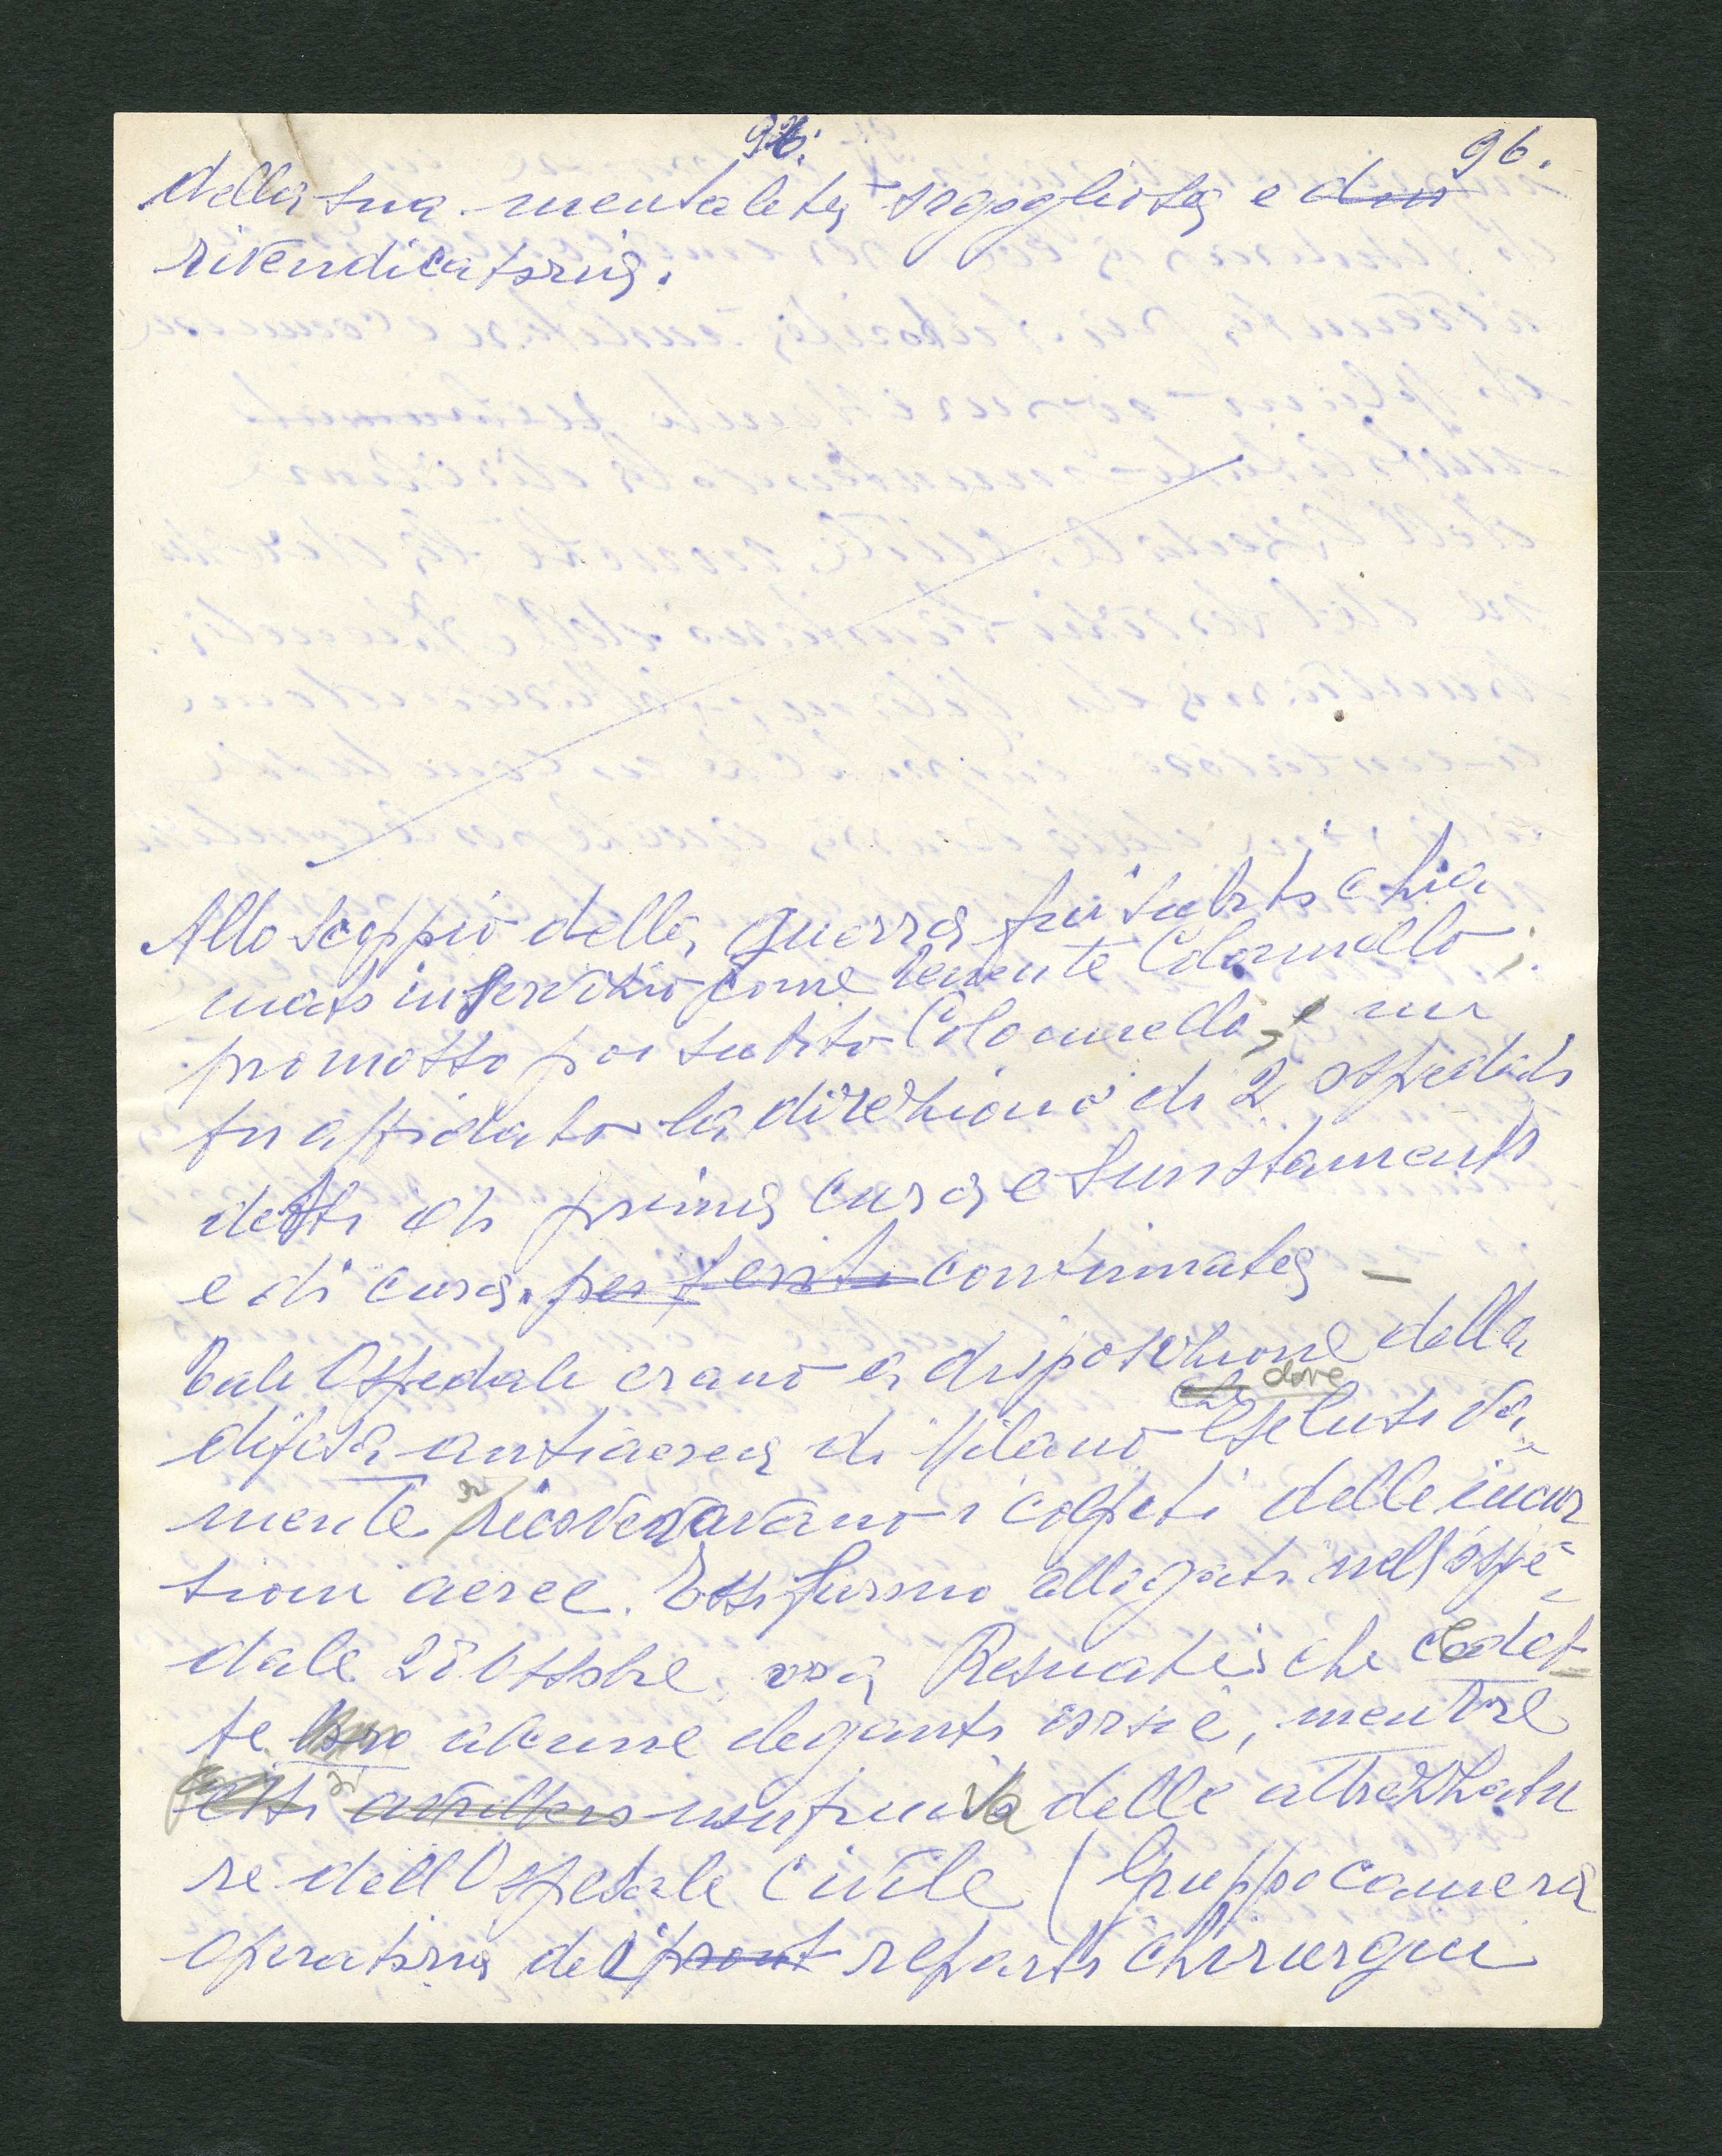 96. 96.
della sua mentalità orgogliosa e
rivendicatoria.
Allo scoppio della guerra fui subito chia
mato in servizio come tenente Colonnello;
promosso poi subito Colonnello, e mi
fu affidato la direzione di 2 ospedali
detti di prima cura e smistamento
e di cura. per feriti continuata –
Tali Ospedali erano a disposizione della
difesa antiaerea di Milano che dove esclusiva
mente si ricoveravano i colpiti delle incur
sioni aeree. Essi furono allogati nell'ospe
dale 28 Ottobre, ora Resnati, che cedet
te loro alcune eleganti corsie, mentre
essi si usufruiva delle attrezzatu
re dell'Ospedale Civile (Gruppo camera
operatoria dei reparti chirurgici